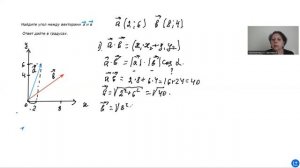 Найдите угол между векторами a⃗ и b⃗
Ответ дайте в градусах.
a⃗ (2; 6) b⃗ (8; 4)
a⃗ · b⃗ = (x₁x₂ + y₁y₂)
a⃗ · b⃗ = |a⃗| · |b⃗| cos α
a⃗ · b⃗ = 2·8 + 6·4 = 16+24 = 40
= √2² + 6² = √40.
b⃗ = √8²
y
6
4
a⃗
b⃗
0
2
8
x